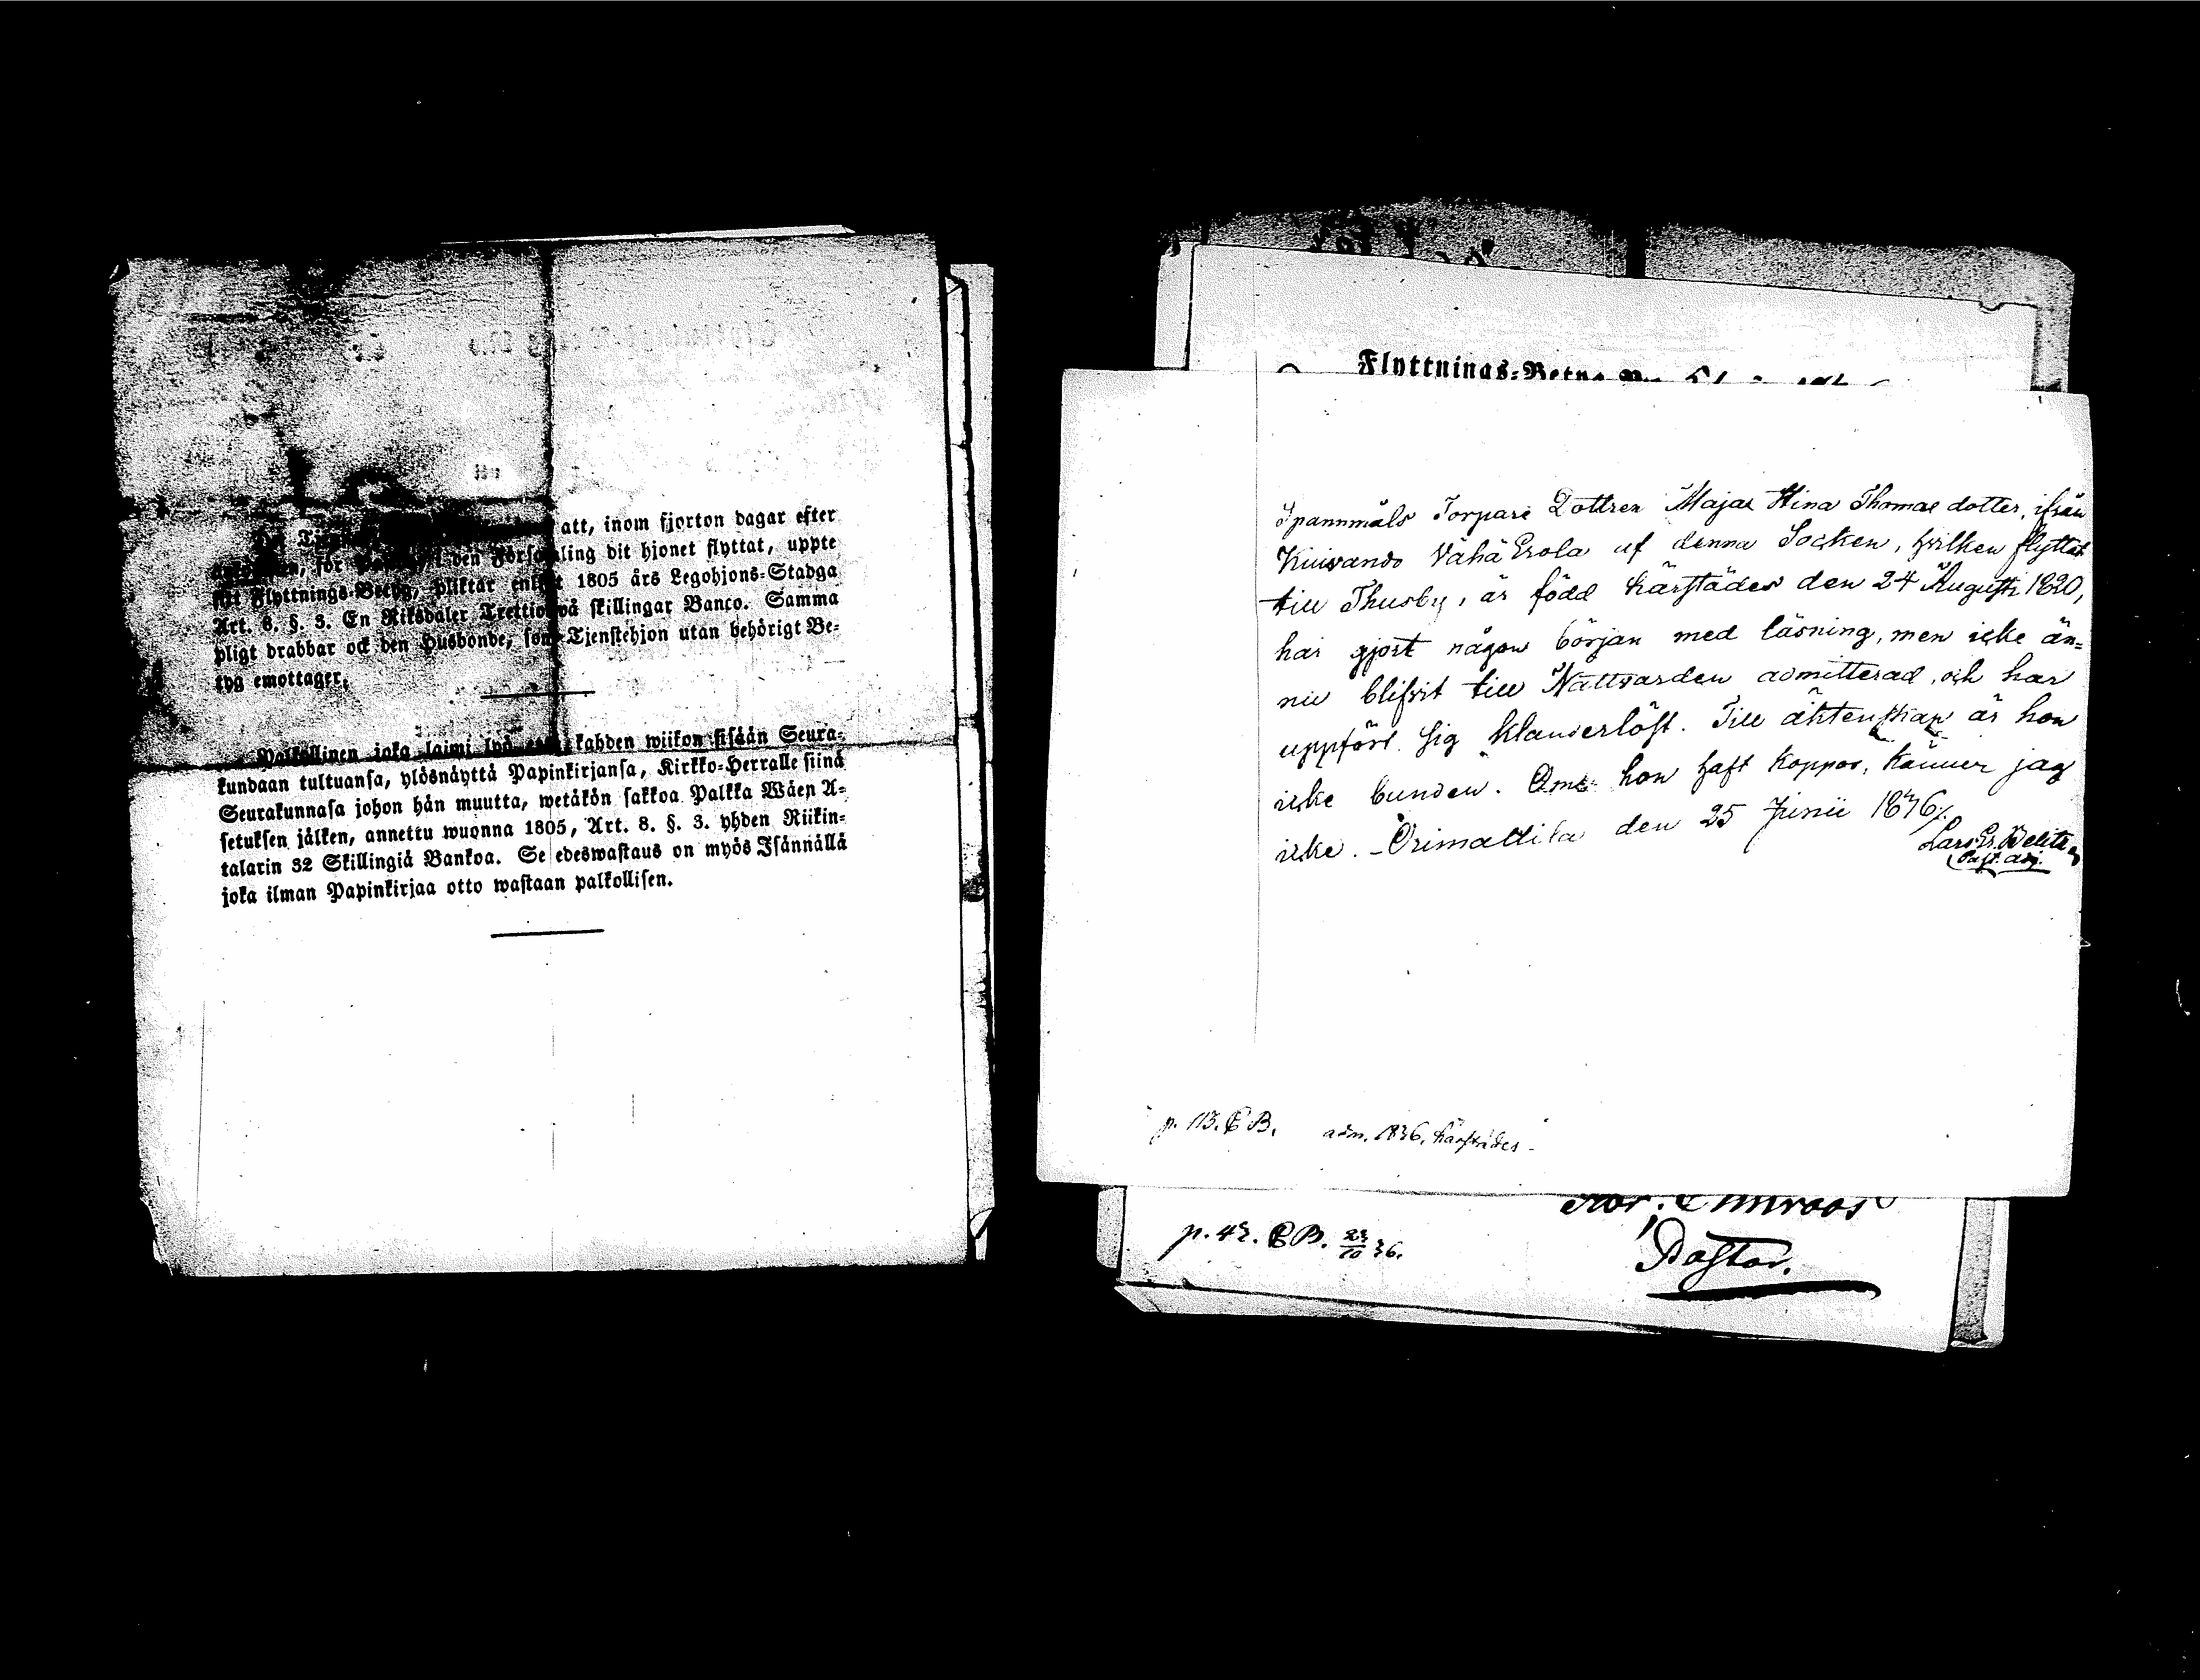 att, inom fjorton dagar efter
den Församling dit hjonet flyttat, uppte
sitt Flyttnings-Betyg, pliktar enligt 1805 års Legohjons-Stadga
Art. 8. §. 3. En Riksdaler Trettiotvå skillingar Banco. Samma
pligt drabbar ock den Husbonde, som Tjenstehjon utan behörigt Be-
tyg emottager.
Palkollinen joka laimi lyö kahden wiikon sisään Seura-
kundaan tultuansa, ylösnäyttä Papinkirjansa, Kirkko-Herralle siinä
Seurakunnasa johon hän muutta, wetäkön sakkoa Palkka Wäen A-
setuksen jälken, annettu wuonna 1805, Art. 8. §. 3. yhden Riikin-
talarin 32 Skillingiä Bankoa. Se edeswastaus on myös Isännällä
joka ilman Papinkirjaa otto wastaan palkollisen.
Flyttnings-Betyg
Spannmåls Torpare Dottren Majas Stina Thomae dotter, ifrån
Kuivando Vähä Erola af denna Socken, hvilken flyttat
till Thusby, är född härstädes den 24 Augusti 1820,
har gjort någon början med läsning, men icke än-
nu blifvit till Nattvarden admitterad, och har
uppfört sig klanderlöst. Till äktenskap är hon
icke bunden. Om hon haft koppor, känner jag
icke. - Orimattila den 25 Junii 1836.
Past. adj.
p. 113. CB. adm. 1836. härstädes -
p. 42. CB. 23/10 36.
Pastor.